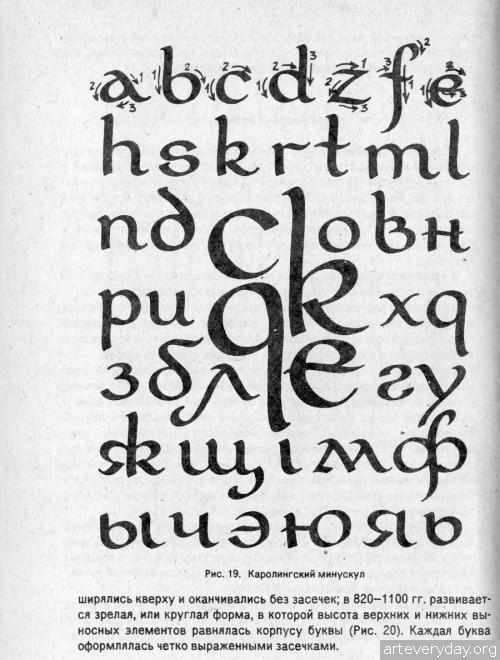 a b c d z f e
h s k r t m l
n д c l о в н
р и q k х q
з б л e г у
ж щ і м ф
ы ч э ю я ь
Рис. 19. Каролингский минускул
ширялись кверху и оканчивались без засечек; в 820–1100 гг. развивает-
ся зрелая, или круглая форма, в которой высота верхних и нижних вы-
носных элементов равнялась корпусу буквы (Рис. 20). Каждая буква
оформлялась четко выраженными засечками.
arteveryday.org